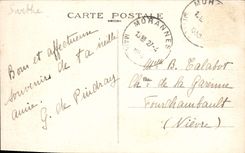 Sarthe
CARTE POSTALE
MORANNES
Bons et affectueux
souvenirs de ta vieille
amie.
G. de Pindray
Mme B. Talabot
Chau de la Garenne
Fourchambault
(Nièvre)